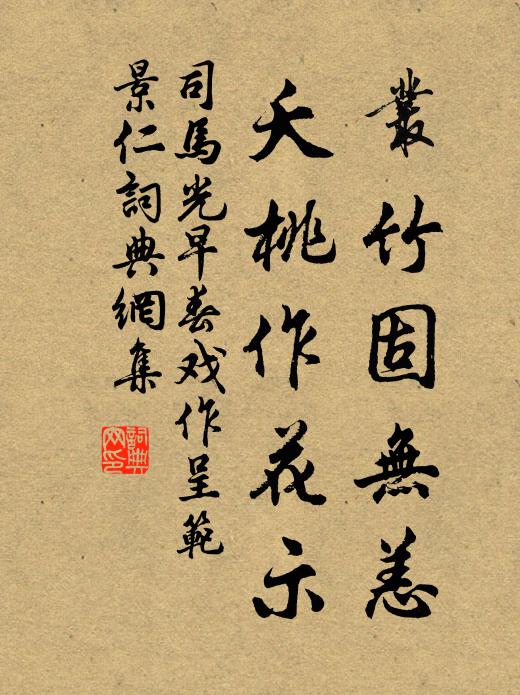 叢竹固無恙
夭桃作花示
司馬光早春戏作呈範
景仁詞典網集
詞典
网印